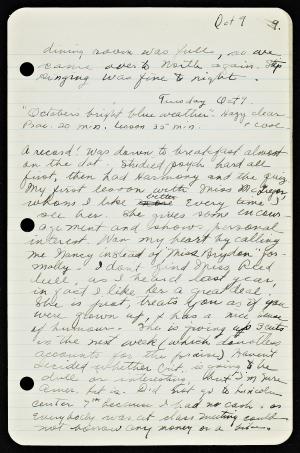 Oct 9    9.
dining room was full, so we
came over to North again. Step
singing was fine to night.
Tuesday Oct 9.
"October's bright blue weather". Hazy, clear
Prac. 20 min. Lesson 35 min. & cool
A record! Was down to breakfast almost
on the dot. Studied psych hard all
first, then had Harmony and the quiz.
My first lesson with Miss McGregor
whom I like better every time I
see her. She gives some encour-
agement and shows personal
interest. Won my heart by calling
me Nancy instead of "Miss Brydon" for-
mally. I don't find Miss Reed
dull, as I heard last year,
in fact I like her a great deal.
She is just, treats you as if you
were grown up, & has a nice sense
of humour. She is giving up 3 cuts
in the next week (which doubtless
accounts for the praise). Haven't
decided whether Crit. is going to be
dull or interesting. But I'm sure
he is. Did not go to Lincoln
Center 7th because I had no cash. as
Everybody was at class meeting could
not borrow any money or a